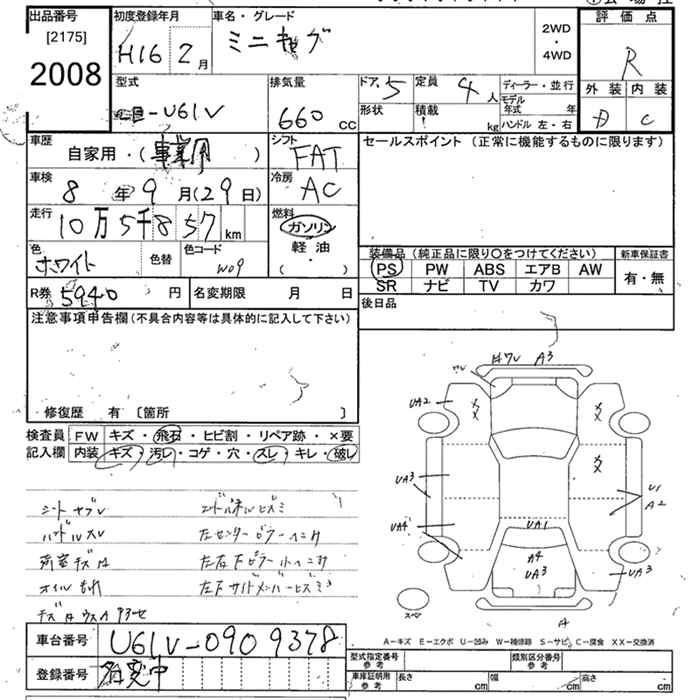 出品番号
[2175]
2008
初度登録年月
H16 2月
車名・グレード
ミニキャブ
2WD
・
4WD
評価点
R
外装 内装
D C
型式
-U61V
排気量
660 cc
ドア 5
形状
定員 4人
積載 kg
ディーラー・並行
モデル年式 年
ハンドル 左・右
車歴
自家用・( 事業用 )
シフト
FAT
車検
8年9月(29日)
冷房
AC
走行
10万5千857 km
燃料
ガソリン
軽油
( )
色
ホワイト
色替
色コード
W09
R券 5940 円
名変期限 月 日
セールスポイント (正常に機能するものに限ります)
装備品 (純正品に限り○をつけてください)
PS PW ABS エアB AW
SR ナビ TV カワ
新車保証書
有・無
後日品
注意事項申告欄 (不具合内容等は具体的に記入して下さい)
修復歴 有 〔箇所 〕
検査員 FW キズ・飛石・ヒビ割・リペア跡・×要
記入欄 内装 キズ・汚レ・コゲ・穴・スレ・キレ・破レ
シートヤブレ
ハンドルスレ
荷室キズ
オイルもれ
左センターピラーヘコミ
A3
UA2
UA3
UA4
UA1
A4
UA3
U1
A2
UA3
A
スペア
A-キズ E-エクボ U-凹み W-補修跡 S-サビ C-腐食 XX-交換済
車台番号 U61V-0909378
登録番号 名変中
型式指定番号
参考
類別区分番号
参考
車庫証明用
参考
長さ cm
幅 cm
高さ cm